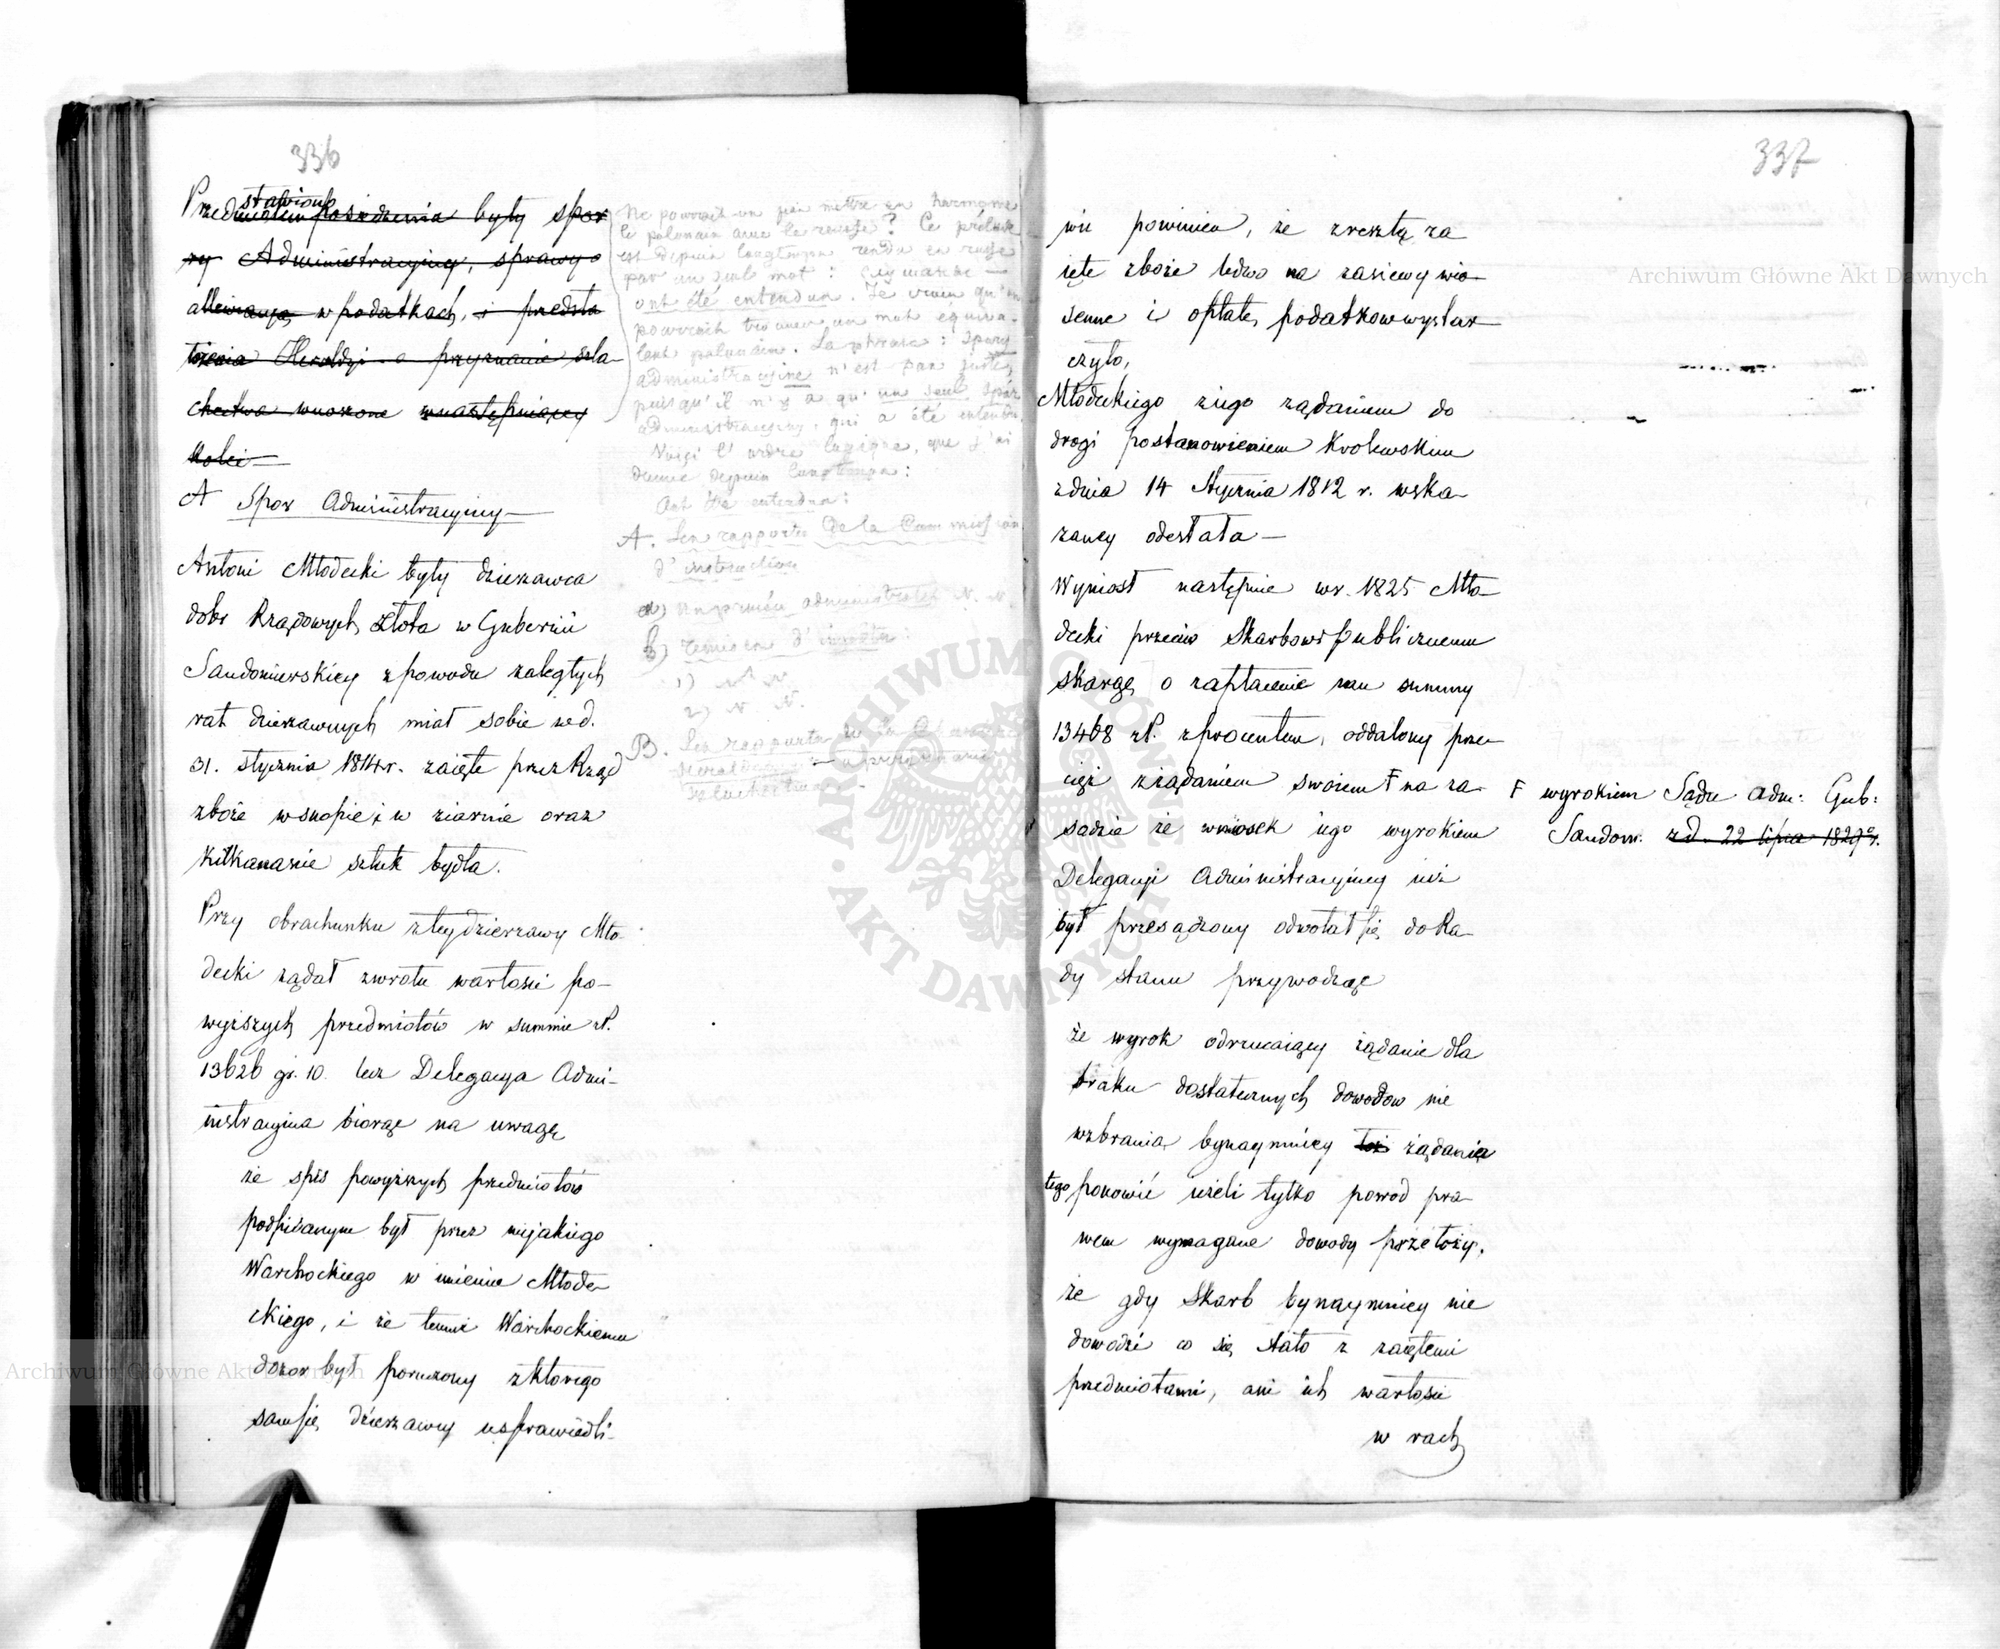 336
stawiono
Przedmiotem posiedzenia były spor
ry Administracyiny, sprawy o
allewiacyą w podatkach, i przedsta
wienia Heroldyi o przyznanie szla-
chectwa wnoszone w następuiącey
kolei
A Spor Administracyiny
Antoni Młodecki były dzierzawca
dobr Rządowych Złota w Gubernii
Sandomierskiey z powodu zaległych
rat dzierzawnych miał sobie w d.
31. stycznia 1814 r. zaięte przez Rząd
zboże w snopie i w ziarnie oraz
kilkanaście sztuk bydła.
Przy obrachunku z tey dzierzawy Mło-
decki żądał zwrotu wartości po-
wyższych przedmiotów w summie zł.
13626 gr. 10. lecz Delegacya Admi-
nistracyina biorąc na uwagę
że spis powyższych przedmiotów
podpisanym był przez niejakiego
Warchockiego w imieniu Młode-
ckiego, i że temuż Warchockiemu
dozor był poruczony z ktorego
sam się dzierzawcy usprawiedli-
Ne pourroit on pas mettre en harmonie
le polonais avec le russe? Ce prélude
est depuis longtemps rendu en russe
par un seul mot:
ont été entendus. Je crois qu'on
pourroit trouver un mot équiva-
lent polonais. La phrase: Spory
administracyine n'est pas juste,
puisqu'il n'y a qu'un seul spór
administracyiny, qui a été entendu.
Voici l'ordre logique, que j'ai
donné depuis longtemps:
Ont été entendus:
A. Les rapports de la Commission
d'instruction
a) en procès administratif N. N.
b) remises d'impôts:
1) N. N.
2) N. N.
B. Les rapports de la
337
wić powinien, że zresztą za
ięte zboże ledwo na zasiewy wio-
senne i opłatę podatkow wystar-
czyło,
Młodeckiego z iego żądaniem do
drogi postanowieniem Krolewskim
z dnia 14 Stycznia 1812 r. wska-
zaney odesłała —
Wyniosł następnie w r. 1825 Mło-
decki przeciw Skarbowi publicznemu
skargę o zapłacenie mu summy
13468 zł. z procentem, oddalony prze-
cięż z żądaniem swoiem F na za-
sadzie że wniosek iego wyrokiem
Delegacyi Administracyiney iuż
był przesądzony odwołał się do Ra-
dy stanu przywodząc
F wyrokiem Sądu Adm: Gub:
Sandom. z d. 22 lipca 1829 r.
że wyrok odrzucaiący żądanie dla
braku dostatecznych dowodow nie
wzbrania bynaymniey też żądania
tego ponowić ieżeli tylko powod pra-
wem wymagane dowody przełoży,
że gdy Skarb bynaymniey nie
dowodzi co się stało z zaiętemi
przedmiotami, ani ich wartości
w rach
Archiwum Główne Akt Dawnych
Archiwum Główne Akt Dawnych
ARCHIWUM GŁÓWNE AKT DAWNYCH